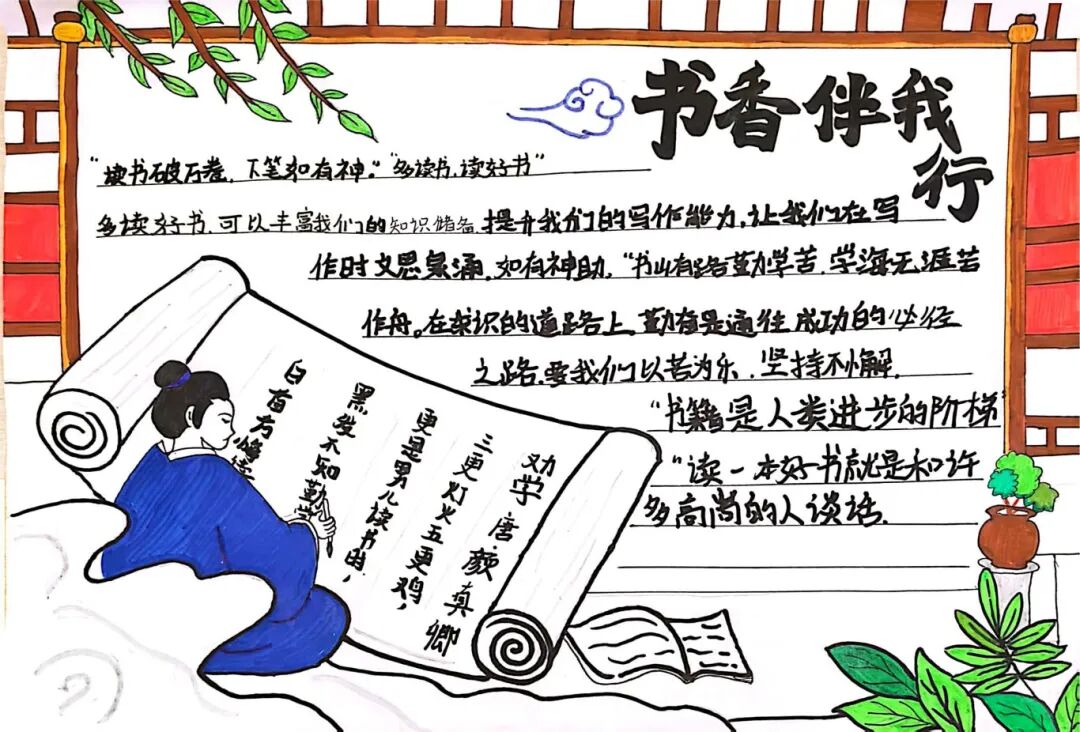 书香伴我
行
"读书破万卷，下笔如有神。""多读书，读好书"
多读好书，可以丰富我们的知识储备，提升我们的写作能力，让我们在写
作时文思泉涌，如有神助，"书山有路勤学苦，学海无涯苦
作舟。在求识的道路上，勤奋是通往成功的必经
之路，要我们以苦为乐，坚持不懈.
"书籍是人类进步的阶梯"
"读一本好书就是和许
多高尚的人谈话.
劝学 唐·颜真卿
三更灯火五更鸡，
更是男儿读书时，
黑发不知勤学
白首方悔读